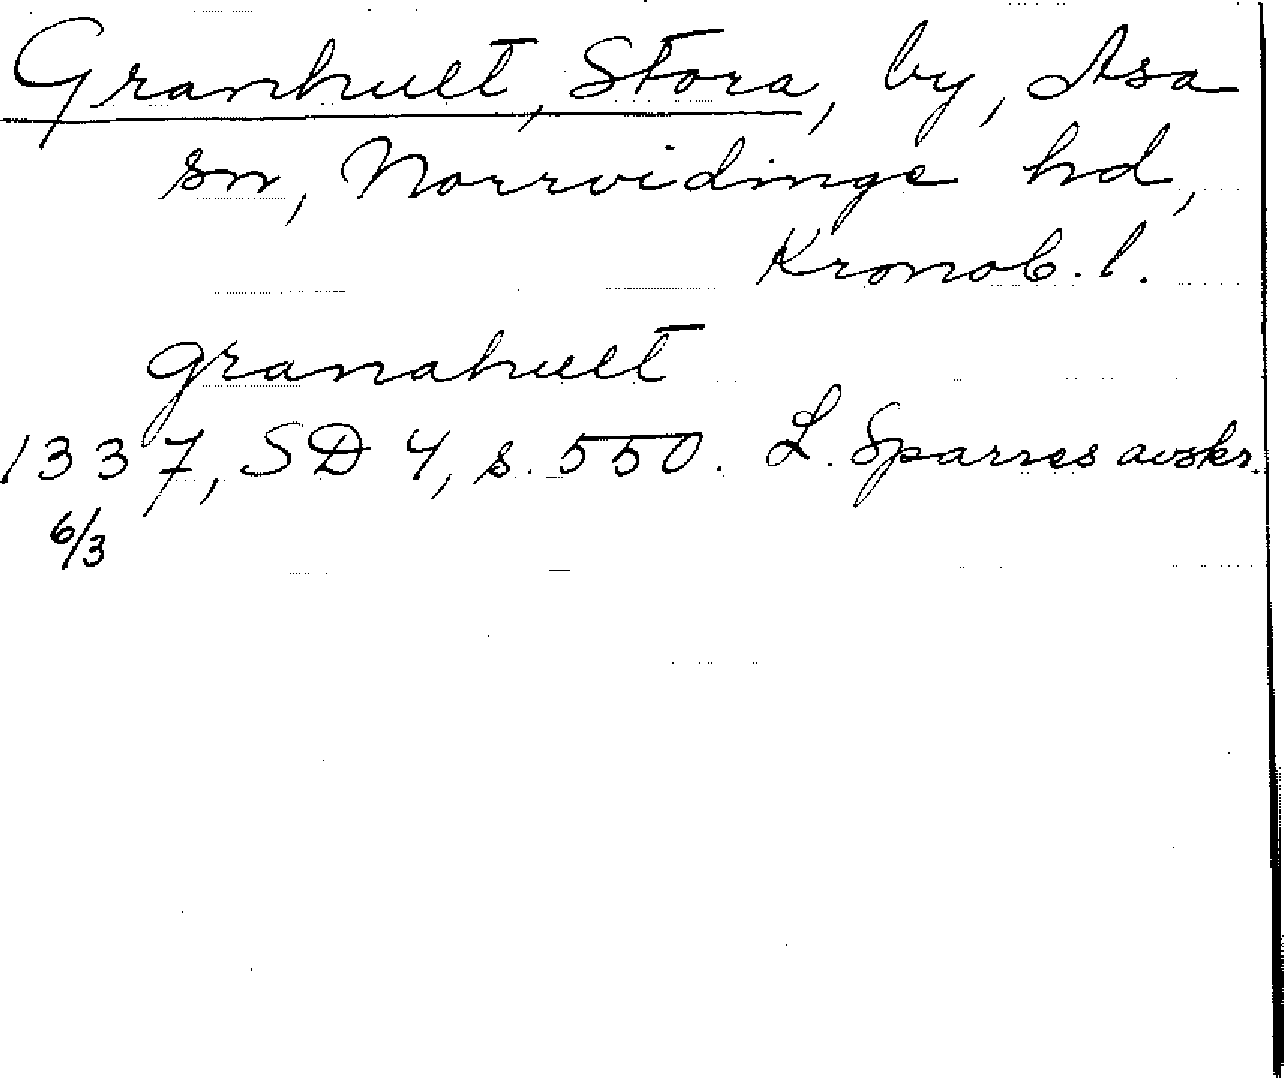 Granhult, Stora, by, Asa
sn, Norrvidinge hd,
Kronob. l.
granahult
1337, SD 4, s. 550. L. Sparres avskr.
6/3